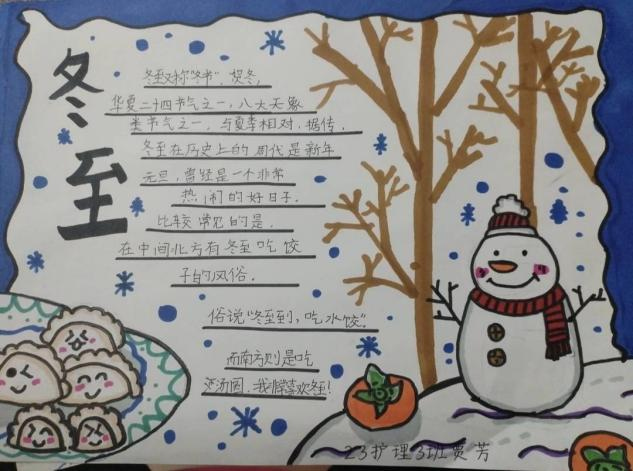 冬至
冬至又称"冬节"、贺冬，
华夏二十四节气之一，八大天象
类节气之一，与夏季相对，据传，
冬至在历史上的周代是新年
元旦，曾经是一个非常
热闹的好日子．
比较常见的是．
在中间北方有冬至吃饺
子的风俗．
俗说"冬至到，吃水饺"．
而南方则是吃
汤圆．我非常喜欢冬至！
23护理3班贾芳